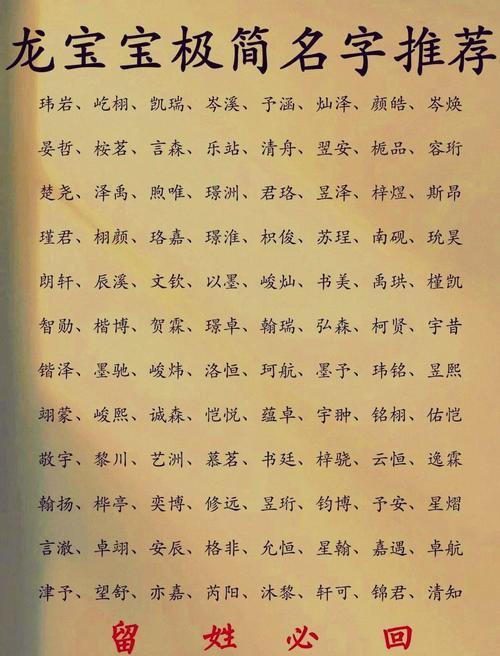 龙宝宝极简名字推荐
玮岩、屹栩、凯瑞、岑溪、予涵、灿泽、颜皓、岑焕
晏哲、桉茗、言森、乐站、清舟、翌安、栀品、容珩
楚尧、泽禹、煦唯、璟洲、君珞、昱泽、梓煜、斯昂
瑾君、栩颜、珞嘉、璟淮、枳俊、苏珵、南砚、玧昊
朗轩、辰溪、文钦、以墨、峻灿、书美、禹珙、槿凯
智勋、楷博、贺霖、璟卓、翰瑞、弘森、柯贤、宇昔
锴泽、墨驰、峻炜、洛恒、珂航、墨予、玮铭、昱熙
翊蒙、峻熙、诚森、恺悦、蕴卓、宇翀、铭栩、佑恺
敬宇、黎川、艺洲、慕茗、书廷、梓骁、云恒、逸霖
翰扬、桦亭、奕博、修远、昱珩、钧博、予安、星熠
言澈、卓翊、安辰、格非、允恒、星翰、嘉遇、卓航
津予、望舒、亦嘉、芮阳、沐黎、轩可、锦君、清知
留姓必回